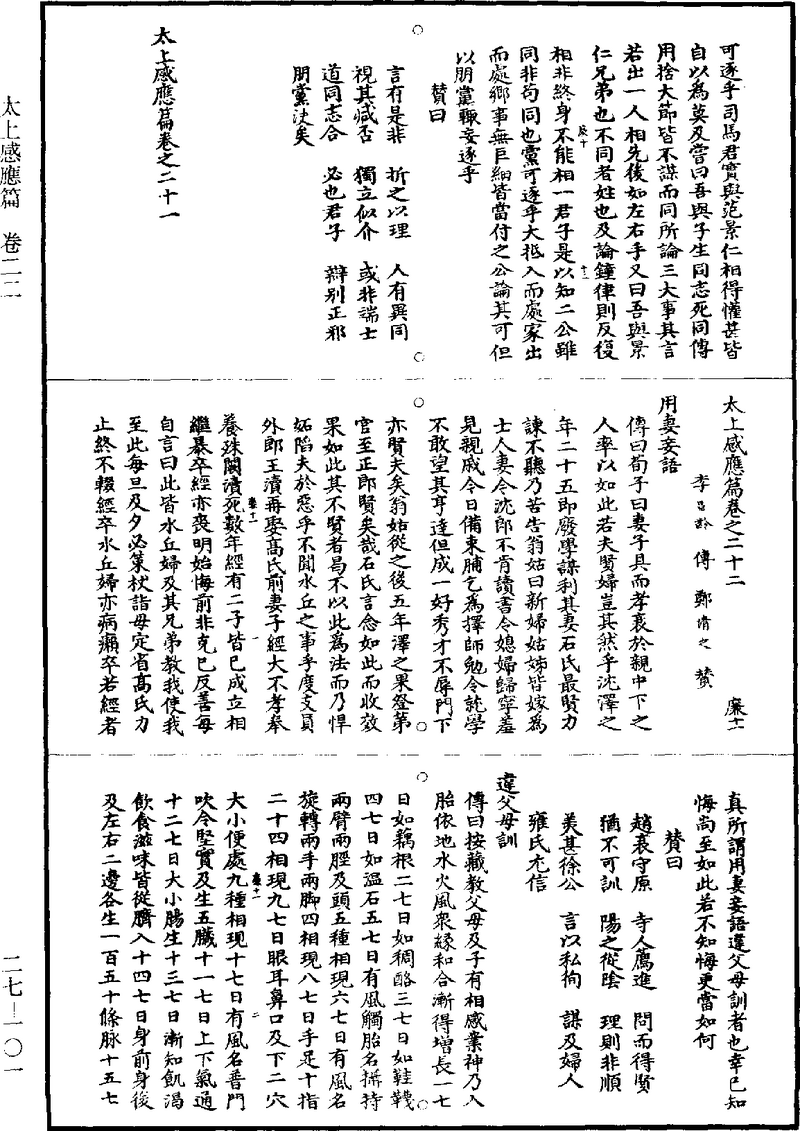 可逐乎司馬君實與范景仁相得懽甚皆
自以為莫及嘗曰吾與子生同志死同傳
用捨大節皆不謀而同所論三大事其言
若出一人相先後如左右手又曰吾與景
仁兄弟也不同者姓也及論鐘律則反復
相非終身不能相一君子是以知二公雖
同非苟同也黨可逐乎大抵入而處家出
而處鄉事無巨細皆當付之公論其可但
以朋黨輒妄逐乎
贊曰
言有是非 折之以理 人有異同
視其臧否 獨立似介 或非端士
道同志合 必也君子 辯別正邪
朋黨決矣
太上感應篇卷之二十一
太上感應篇卷之二十二 廉十一
李昌齡 傳 鄭清之 贊
用妻妾語
傳曰荀子曰妻子具而孝衰於親中下之
人率以如此若夫賢婦豈其然乎沈澤之
年二十五即廢學謀利其妻石氏最賢力
諫不聽乃苦告翁姑曰新婦姑姊皆嫁為
士人妻令沈郎不肯讀書令媳婦歸寧羞
見親戚今日備束脯乞為擇師勉令就學
不敢望其亨達但成一好秀才不辱門下
亦賢夫矣翁姑從之後五年澤之果登第
官至正郎賢矣哉石氏言念如此而收效
果如此其不賢者曷不以此為法而乃悍
妬陷夫於惡乎不聞水丘之事乎度支員
外郎王瀆再娶高氏前妻子經大不孝奉
養殊闕瀆死數年經有二子皆已成立相
繼暴卒經亦喪明始悔前非克已反善每
自言曰此皆水丘婦及其兄弟教我使我
至此每旦及夕必策杖詣母定省高氏力
止終不輟經卒水丘婦亦病癩卒若經者
真所謂用妻妾語違父母訓者也幸已知
悔尚至如此若不知悔更當如何
贊曰
趙衰守原 寺人薦進 問而得賢
猶不可訓 陽之從陰 理則非順
美其徐公 言以私徇 謀及婦人
雍氏尤信
違父母訓
傳曰按藏教父母及子有相感業神乃入
胎依地水火風衆緣和合漸得增長一七
日如藕根二七日如稠酪三七日如鞋韈
四七日如溫石五七日有風觸胎名攝持
兩臂兩脛及頭五種相現六七日有風名
旋轉兩手兩脚四相現八七日手足十指
二十四相現九七日眼耳鼻口及下二穴
大小便處九種相現十七日有風名普門
吹令堅實及生五臟十一七日上下氣通
十二七日大小腸生十三七日漸知飢渴
飲食滋味皆從臍入十四七日身前身後
及左右二邊各生一百五十條脉十五七
太上感應篇 卷二二
二七—一〇一